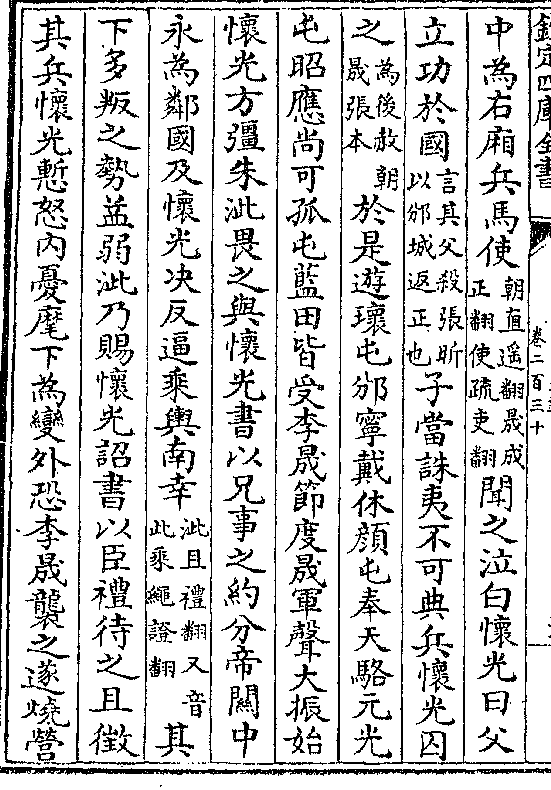 欽定四庫全書
卷二百三十
中為右廂兵馬使朝直遥翻晟成正翻使疏吏翻聞之泣白懷光曰父
立功於國言其父殺張昕以邠城返正也子當誅夷不可典兵懷光囚
之為後赦朝晟張本於是遊瓌屯邠寧戴休顔屯奉天駱元光
屯昭應尚可孤屯藍田皆受李晟節度晟軍聲大振始
懷光方彊朱泚畏之與懷光書以兄事之約分帝關中
永為鄰國及懷光决反逼乘輿南幸泚且禮翻又音此乘繩證翻其
下多叛之勢益弱泚乃賜懷光詔書以臣禮待之且徵
其兵懷光慙怒内憂麾下為變外恐李晟襲之遂燒營